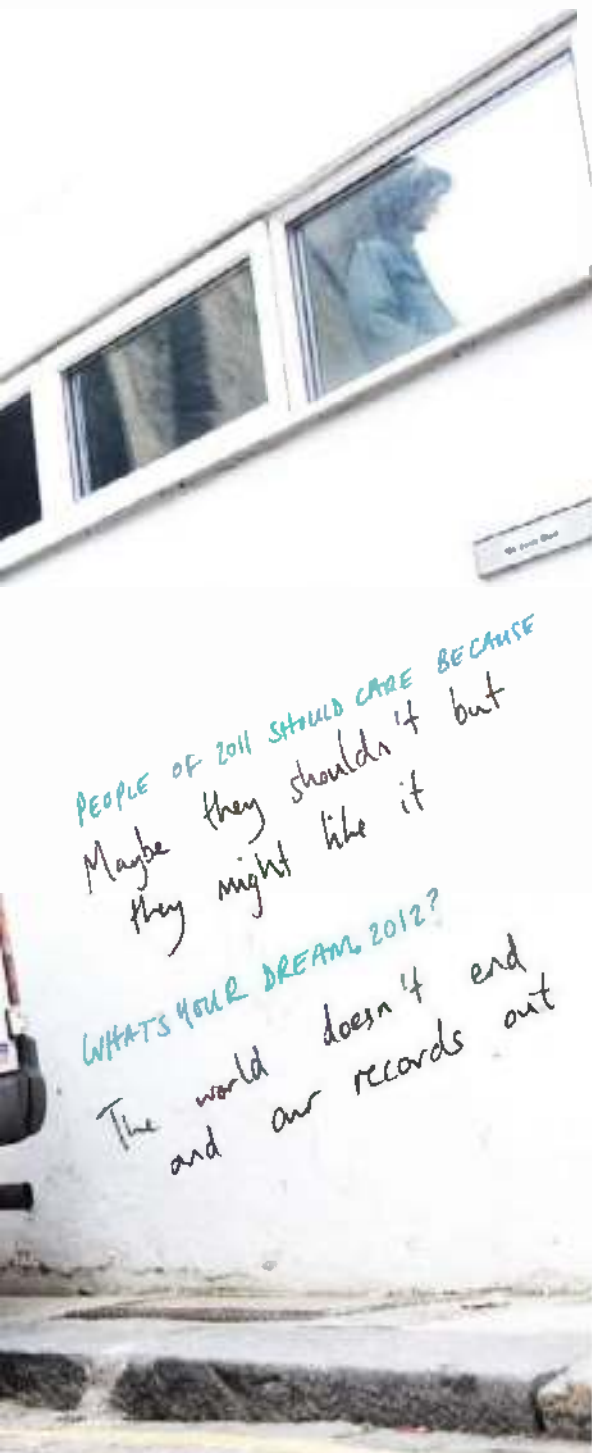 PEOPLE OF 2011 SHOULD CARE BECAUSE
Maybe they shouldn't but
they might like it
WHATS YOUR DREAM, 2012?
The world doesn't end
and our records out